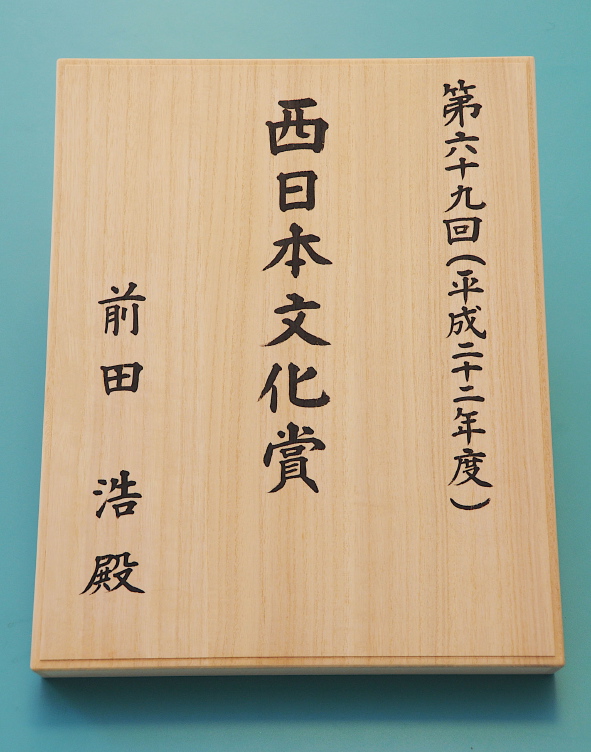 第六十九回(平成二十二年度)
西日本文化賞
前田 浩殿